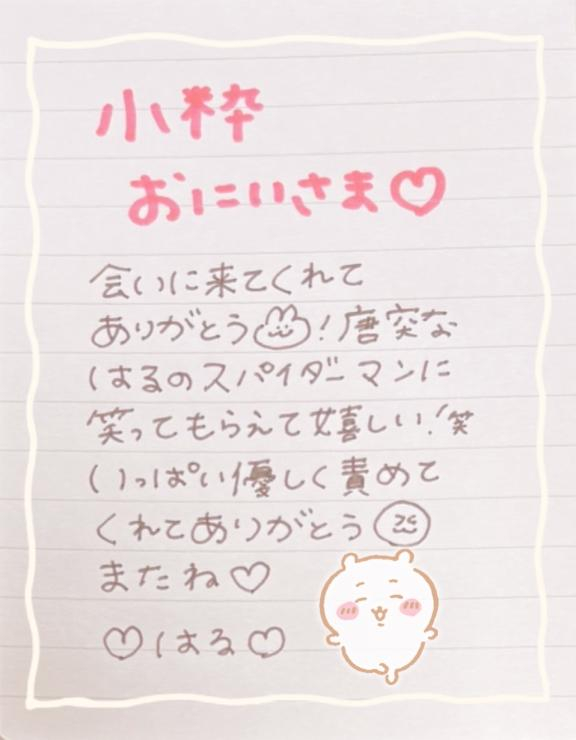 小粋
おにいさま♡
会いに来てくれて
ありがとう！唐突な
はるのスパイダーマンに
笑ってもらえて嬉しい！笑
いっぱい優しく責めて
くれてありがとう
またね♡
♡はる♡